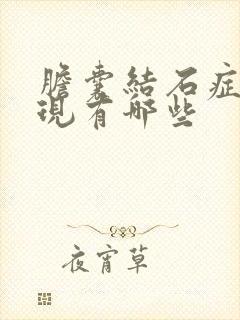 膽囊結石症
現有哪些
夜宵草